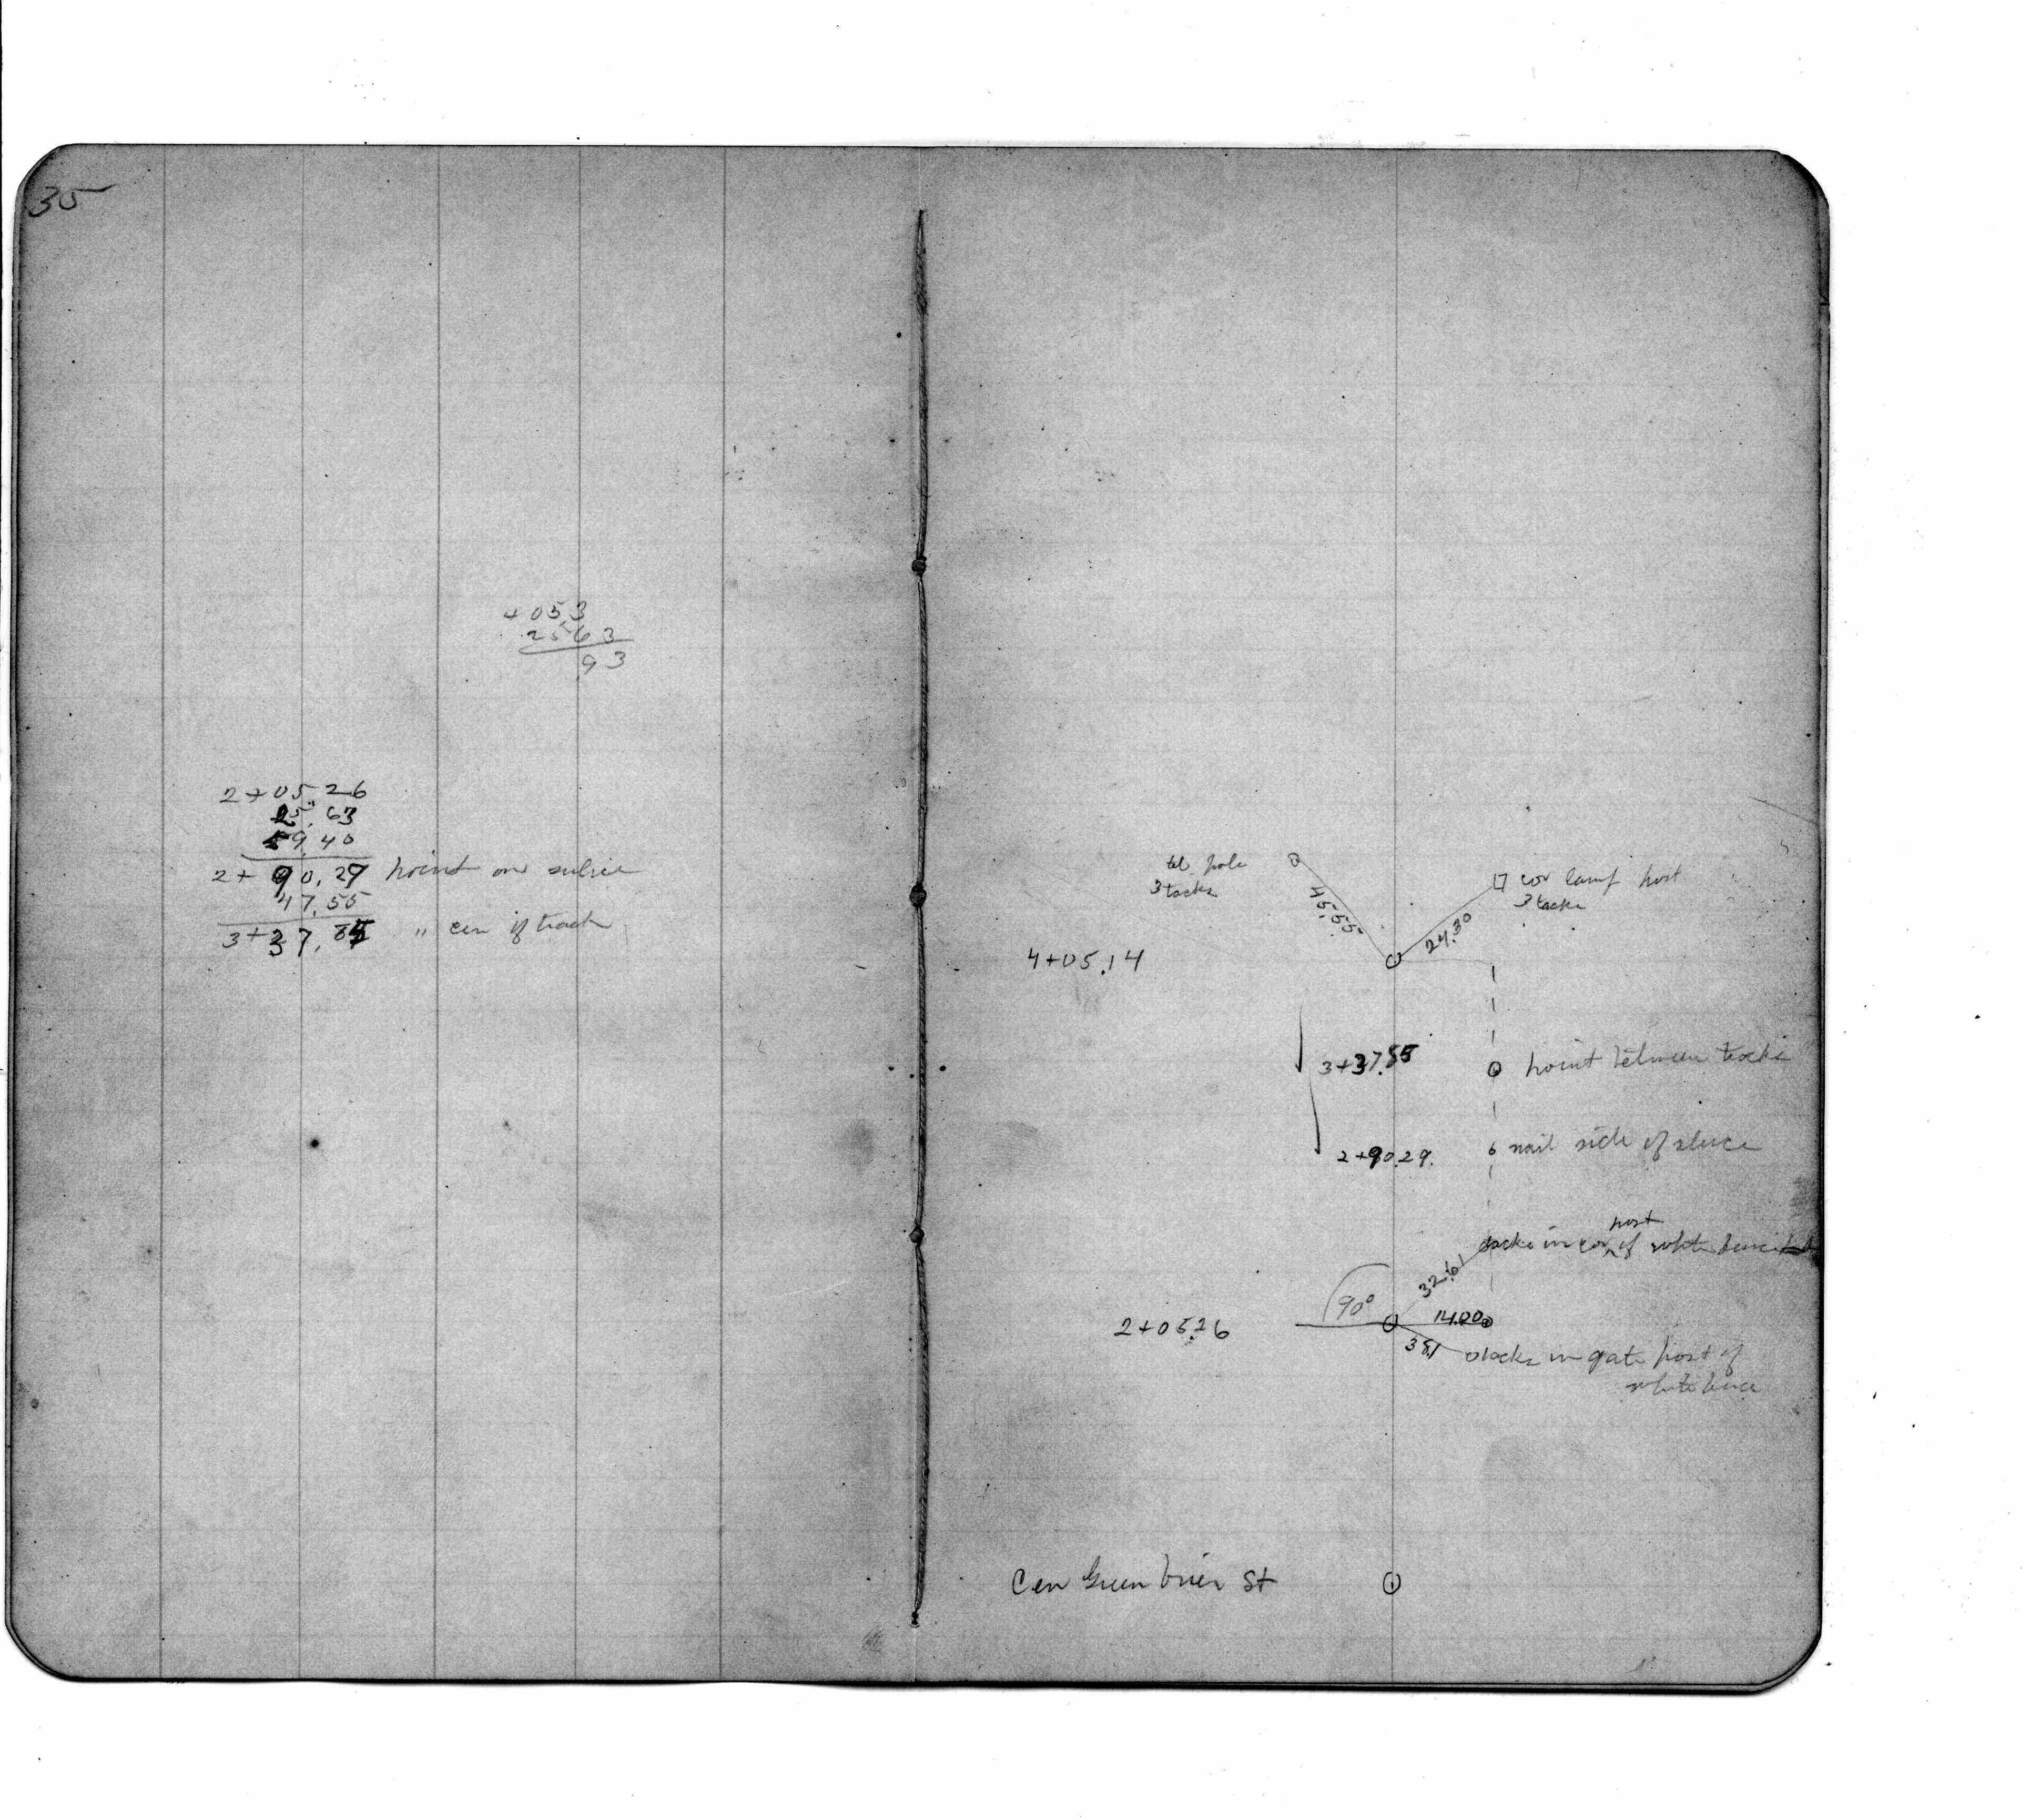 35
+05.3
25.63
93
2+05.26
25.63
59.40
2+90.29 point on sulice
47.55
3+37.84 " cen of track
tel. pole
3 tacks
45.55
cor lamp post
3 tacks
24.30
4+05.14
3+37.85 point between tracks
2+90.29. nail side of sluce
post
tacks in cor of white fence
32.61
90°
14.00
2+05.26
38.1 tacks in gate post of
white fence
Cen Green brier St